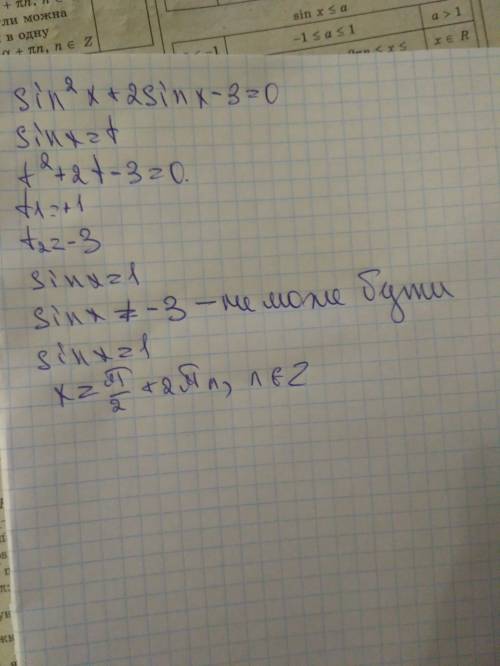 + πn, n
ли можна
в одну
α + πn, n ∈ Z
sin x ≤ a
-1 ≤ a ≤ 1
a > 1
x ∈ R
sin²x+2sinx-3=0
sinx=t
t²+2t-3=0.
t1=+1
t2=-3
sinx=1
sinx≠-3 - не може бути
sinx=1
x=π/2+2πn, n∈Z